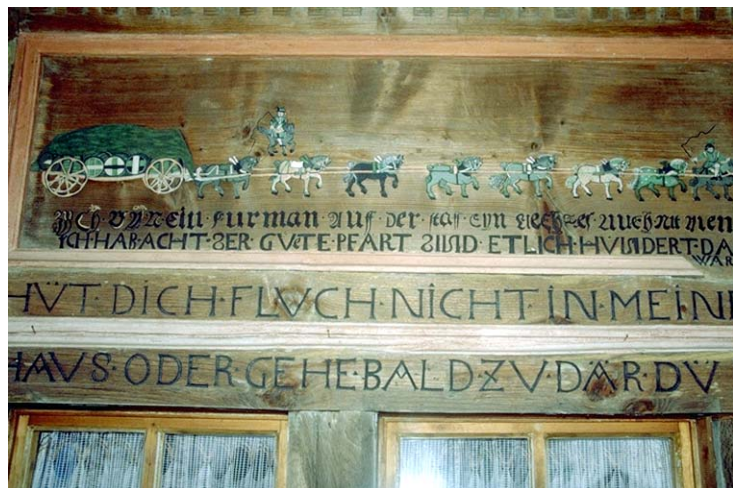 Ich·BYN·ein·furman·auf·der·
ICH·HAB·ACHT·SER·GUTE·PFART·SIND·ETLICH·HUNDERT·DA
WAR
HÜT·DICH·FLUCH·NICHT·IN·MEIN
HAUS·ODER·GEHE·BALD·ZU·DÄR·DÜ